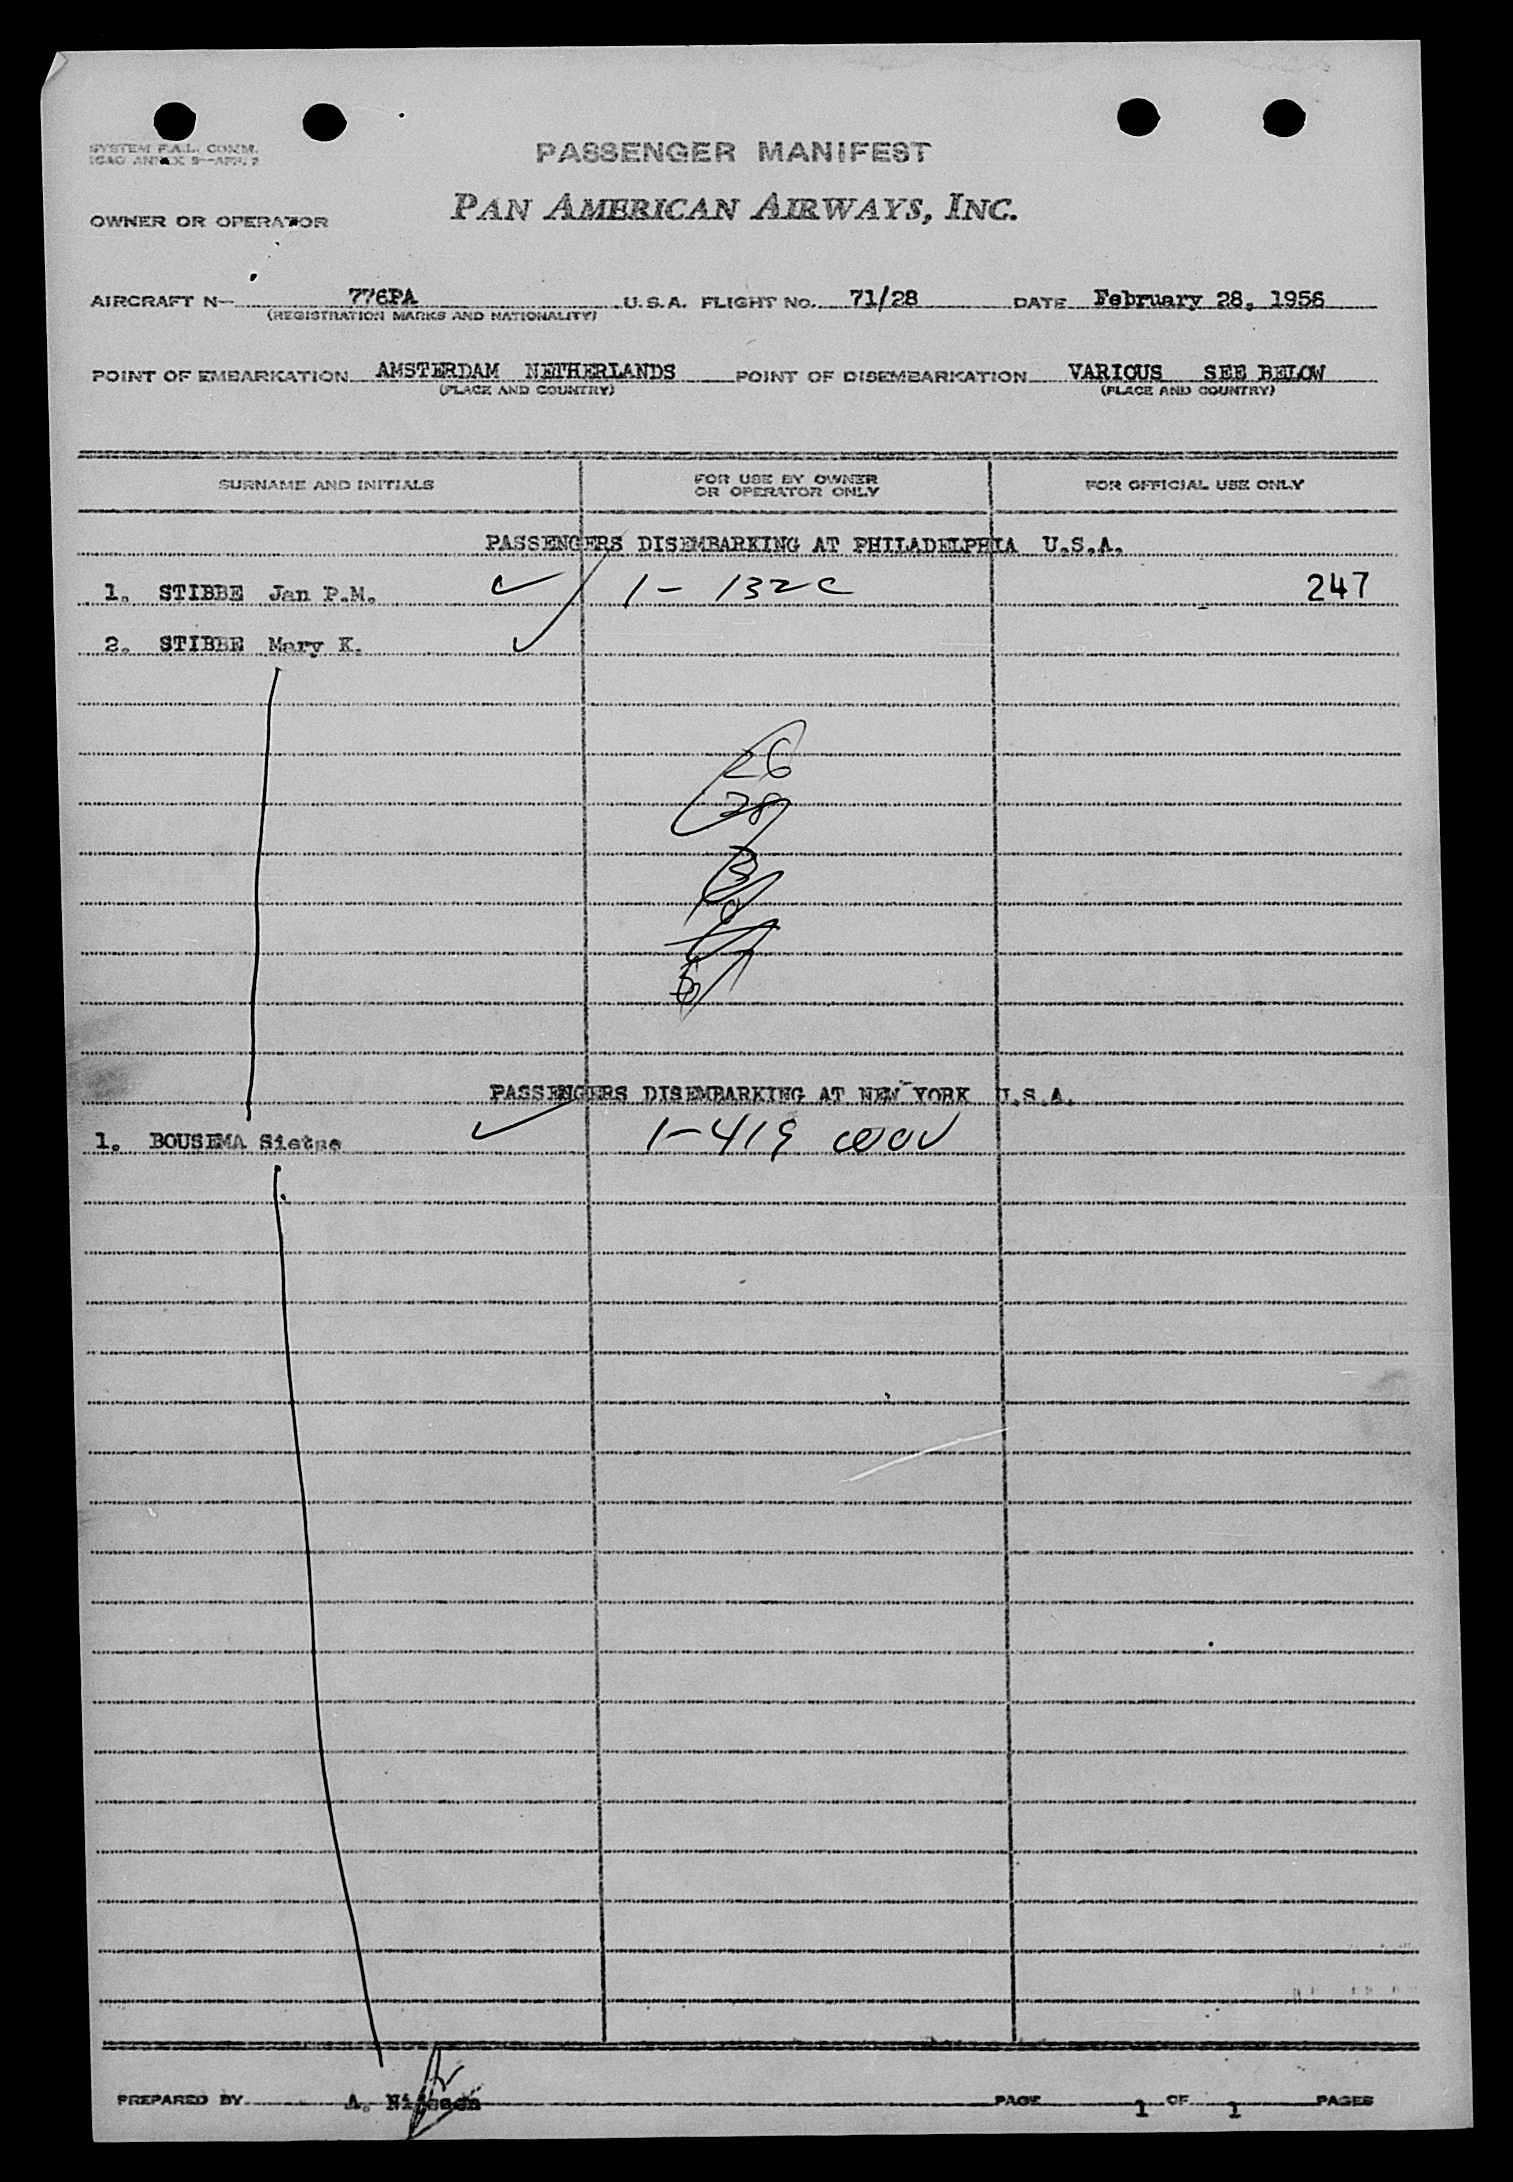 SYSTEM F.A.L. COMM.
ICAO ANNEX 9—APP. 2
PASSENGER MANIFEST
OWNER OR OPERATOR PAN AMERICAN AIRWAYS, INC.
AIRCRAFT N— 776PA U.S.A. FLIGHT NO. 71/28 DATE February 28, 1956
(REGISTRATION MARKS AND NATIONALITY)
POINT OF EMBARKATION AMSTERDAM NETHERLANDS POINT OF DISEMBARKATION VARIOUS SEE BELOW
(PLACE AND COUNTRY) (PLACE AND COUNTRY)
SURNAME AND INITIALS FOR USE BY OWNER OR OPERATOR ONLY FOR OFFICIAL USE ONLY
PASSENGERS DISEMBARKING AT PHILADELPHIA U.S.A.
1. STIBBE Jan P.M. 1 - 132C 247
2. STIBBE Mary K.
26
28
3
PASSENGERS DISEMBARKING AT NEW YORK U.S.A.
1. BOUSEMA 1-419
PREPARED BY A. PAGE 1 OF 1 PAGES